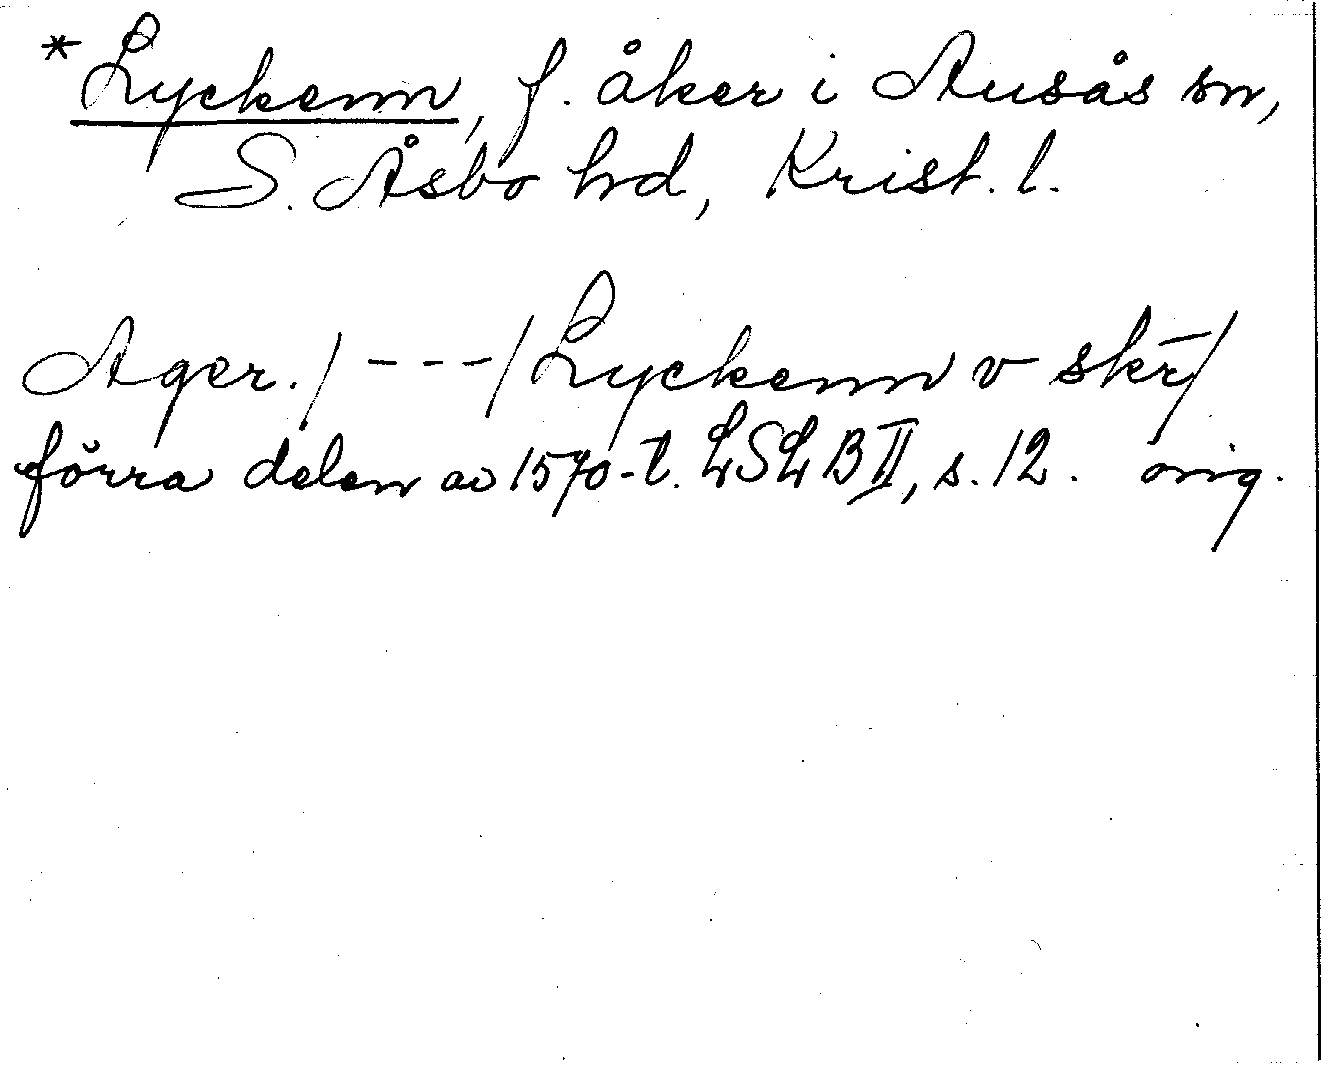 *Lyckenn, f. åker i Ausås sn,
S. Åsbo hd, Krist. l.
Ager. / - - - / Lyckenn v skr/
förra delen av 1570-t. LSLB II, s. 12. orig.